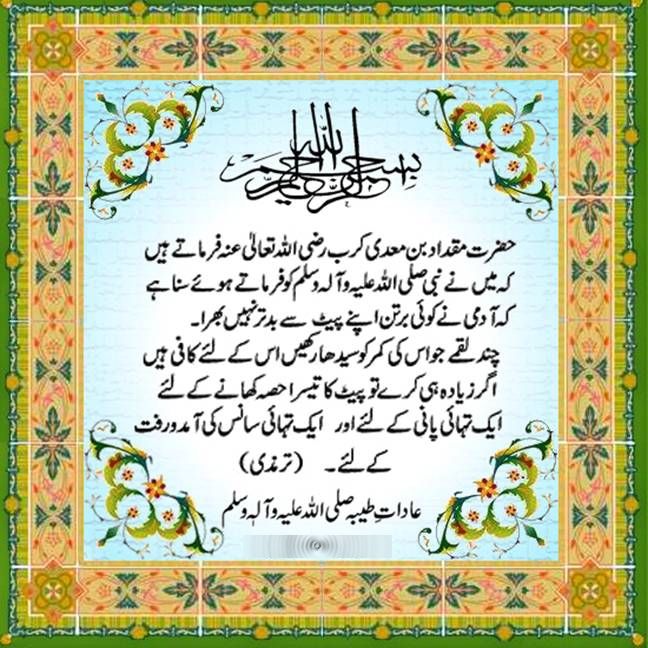 بسم الله الرحمن الرحيم
حضرت مقداد بن معدی کرب رضی اللہ تعالیٰ عنہ فرماتے ہیں
کہ میں نے نبی صلی اللہ علیہ وآلہ وسلم کو فرماتے ہوئے سنا ہے
کہ آدمی نے کوئی برتن اپنے پیٹ سے بدتر نہیں بھرا۔
چند لقمے جو اس کی کمر کو سیدھا رکھیں اس کے لئے کافی ہیں
اگر زیادہ ہی کرے تو پیٹ کا تیسرا حصہ کھانے کے لئے
ایک تہائی پانی کے لئے اور ایک تہائی سانس کی آمدورفت
کے لئے۔ (ترمذی)
عاداتِ طیبہ صلی اللہ علیہ وآلہٖ وسلم